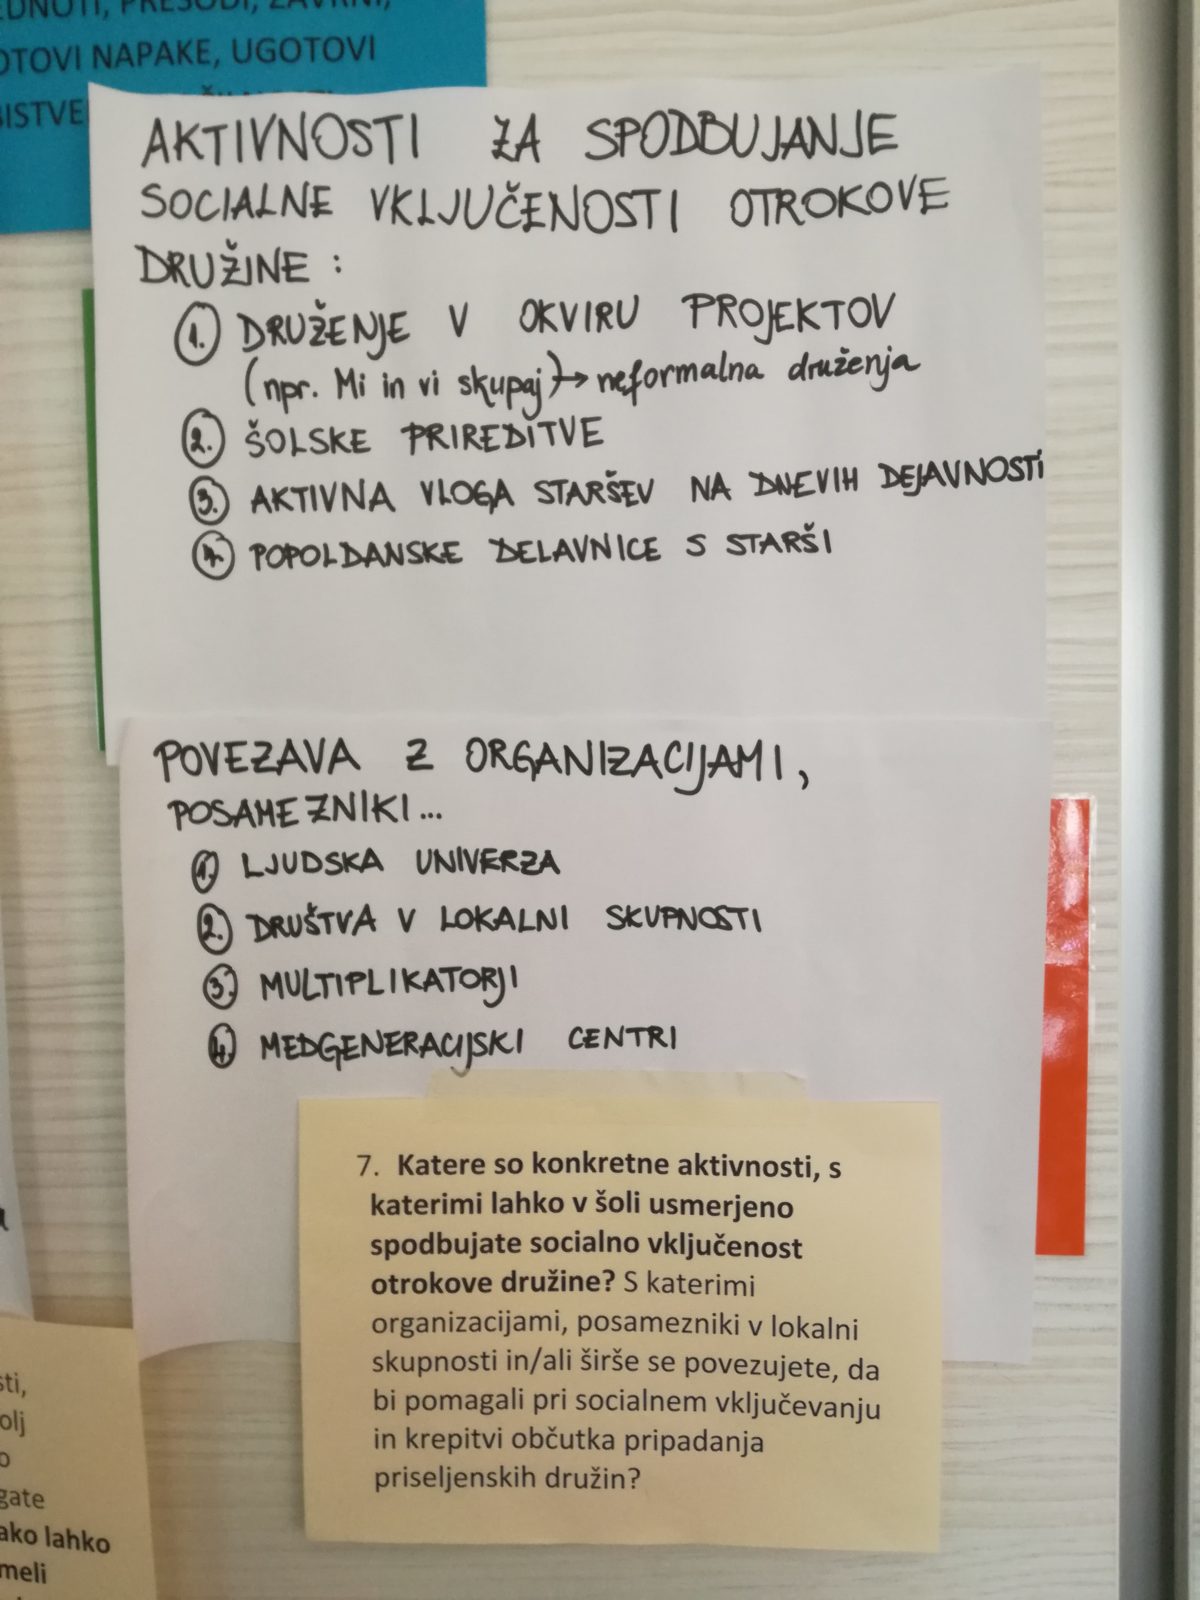 PRESODI, ZAVRNI,
NAPAKE, UGOTOVI
AKTIVNOSTI ZA SPODBUJANJE
SOCIALNE VKLJUČENOSTI OTROKOVE
DRUŽINE:
1. DRUŽENJE V OKVIRU PROJEKTOV
(npr. Mi in vi skupaj) → neformalna druženja
2. ŠOLSKE PRIREDITVE
3. AKTIVNA VLOGA STARŠEV NA DNEVIH DEJAVNOSTI
4. POPOLDANSKE DELAVNICE S STARŠI
POVEZAVA Z ORGANIZACIJAMI,
POSAMEZNIKI...
1. LJUDSKA UNIVERZA
2. DRUŠTVA V LOKALNI SKUPNOSTI
3. MULTIPLIKATORJI
4. MEDGENERACIJSKI CENTRI
7. Katere so konkretne aktivnosti, s
katerimi lahko v šoli usmerjeno
spodbujate socialno vključenost
otrokove družine? S katerimi
organizacijami, posamezniki v lokalni
skupnosti in/ali širše se povezujete, da
bi pomagali pri socialnem vključevanju
in krepitvi občutka pripadanja
priseljenskih družin?
lahko